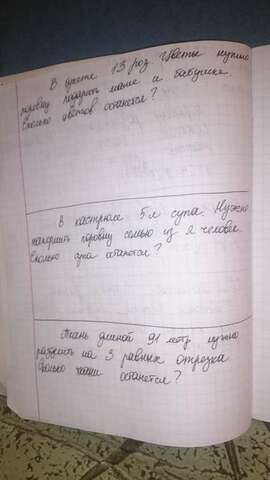 В букете 13 роз. Цветы нужно
поровну подарить маме и бабушке.
Сколько цветов останется?
В кастрюле 5 л супа. Нужно
накормить поровну семью из 2 человек.
Сколько супа останется?
Ткань длиной 91 метр нужно
разделить на 3 равных отрезка.
Сколько ткани останется?